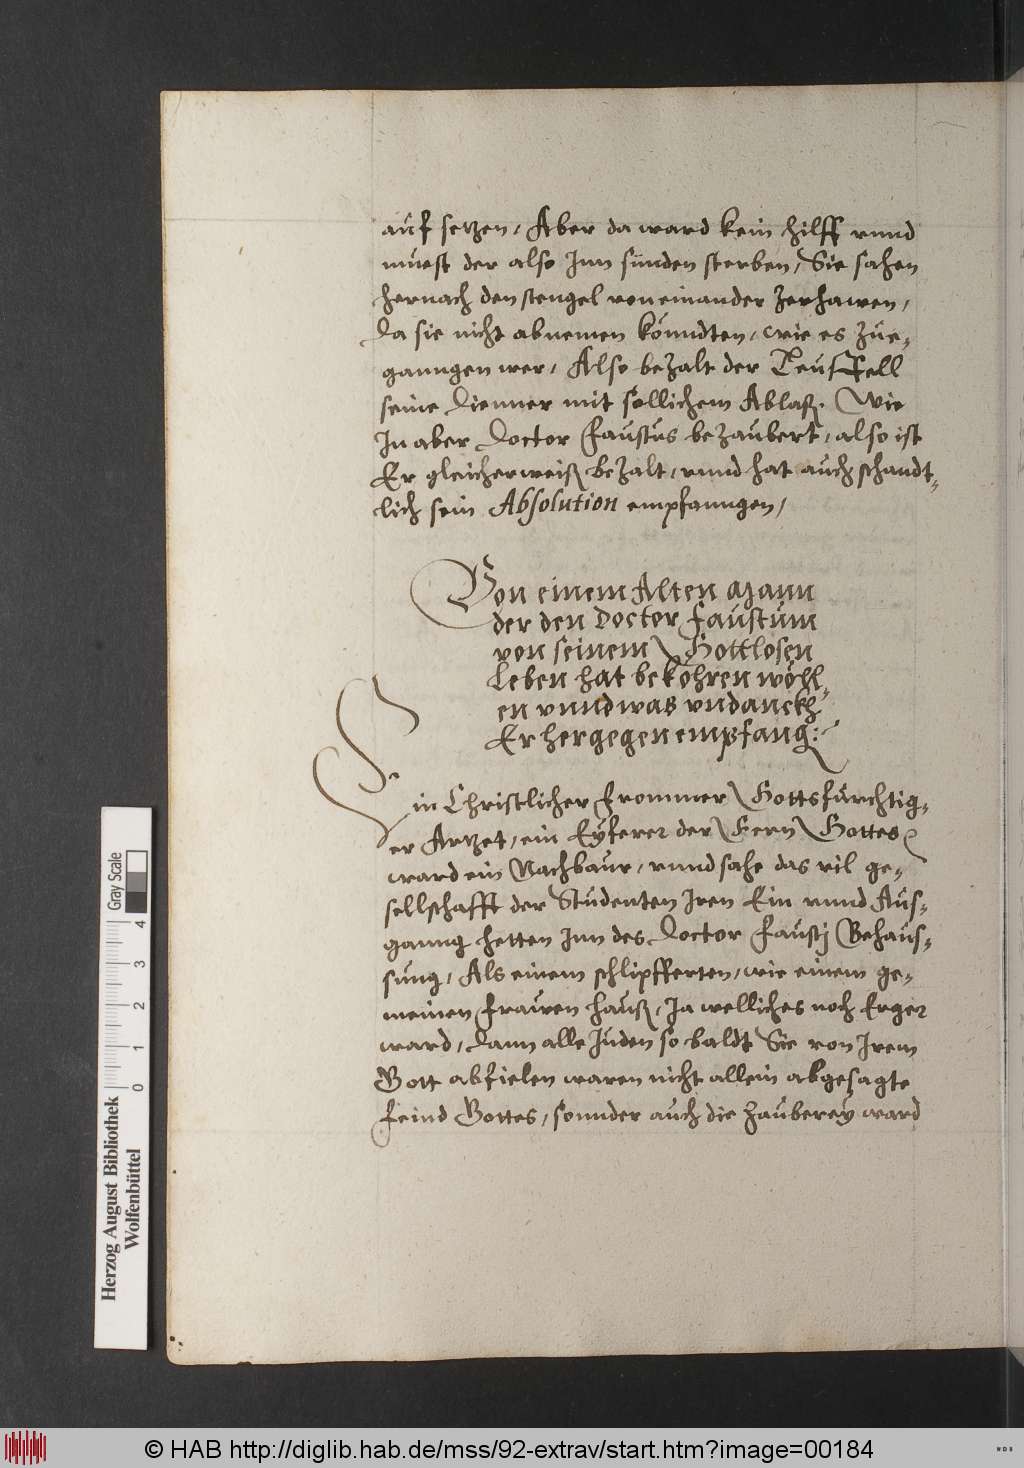 auf setzen, Aber da ward kein hilff vnnd
muest der also Inn sünden sterben, Sie sahen
hernach den stengel von einander zerhawen,
Da sie nicht abnemen könndten, wie es zue-
ganngen wer, Also bezalt der Teuffell
seine Dienner mit sollichem Ablaß. Wie
In aber Doctor Faustus bezaubert, also ist
Er gleicherweiß bezalt, vnnd hat auch schandt-
lich sein Absolution empfanngen,
Von einem Alten Mann
der den Doctor Faustum
von seinem Gottlosen
Leben hat bekohren wöhl-
en vnnd was vndanckh
Er hergegen empfang:
Ein Christlicher frommer Gottsfürchtig-
er Artzet, ein Eyferer der Eern Gottes
ward ein Nachbaur, vnnd sahe das vil ge-
sellschafft der Studenten Iren Ein vnnd Aus-
ganng hetten Inn des Doctor Faustj Behaus-
sung, Als einem schlipfferten, wie einem ge-
meinen frawen hauß, Ja welliches noch Erger
ward, Dann alle Juden so baldt Sie von Irem
Gott abfielen waren nicht allein abgesagte
feind Gottes, sonnder auch die Zauberey ward
Herzog August Bibliothek
Wolfenbüttel
0 1 2 3 4
Gray Scale
© HAB http://diglib.hab.de/mss/92-extrav/start.htm?image=00184
WDB